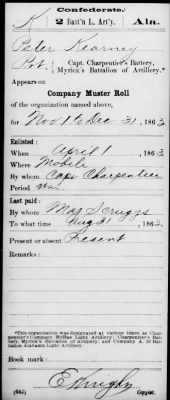 Confederate.
K 2 Batt'n L. Art'y. Ala.
Peter Kearney
Pvt. Capt. Charpentier's Battery,
Myrick's Battalion of Artillery.*
Appears on
Company Muster Roll
of the organization named above,
for Nov 1 to Dec 31, 1863
Enlisted:
When April 1, 1863
Where Mobile
By whom Capt Charpentier
Period War
Last paid:
By whom Maj Scruggs
To what time Aug 31, 1863.
Present or absent Present
Remarks:
*This organization was designated at various times as Charpentier's Company McRae Light Artillery; Charpentier's Battery, Myrick's Battalion of Artillery; and Company A, 2d Battalion Alabama Light Artillery.
Book mark:
E Knight
(642) Copyist.